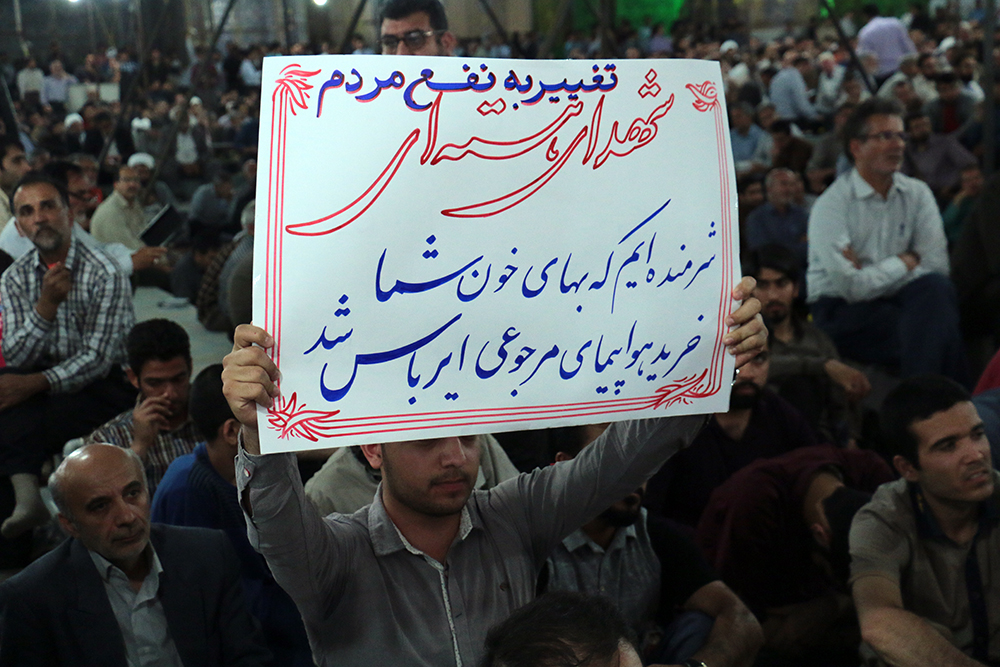 تغییر به نفع مردم
شهدای هسته ای
شرمنده ایم که بهای خون شما
خرید هواپیمای مرجوعی ایرباس شد